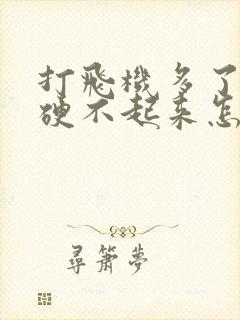 打飛機多了
硬不起來怎
尋簫夢